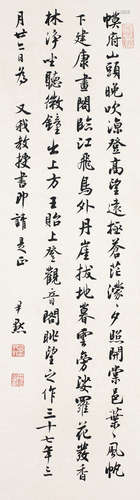 幙府山頭晚吹涼登高望遠極蒼茫濛々夕照開棠邑葉々風帆
下建康畫閣臨江飛鳥外丹崖拔地暮雲旁娑羅花發香
林淨坐聽微鐘出上方王貽上登觀音閣眺望之作三十七年三
月廿二日為 又我教授書即請是正
尹默